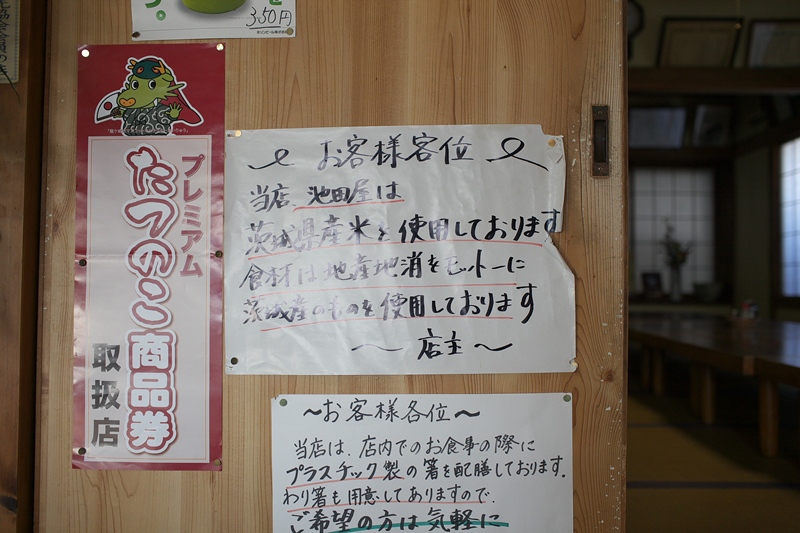 350円
プレミアム
たつのこ商品券
取扱店
お客様客位
当店、池田屋は
茨城県産米を使用しております
食材は地産地消をモットーに
茨城産のものを使用しております
〜 店主 〜
〜お客様各位〜
当店は、店内でのお食事の際に
プラスチック製の箸を配膳しております。
わり箸も用意してありますので、
ご希望の方は気軽に